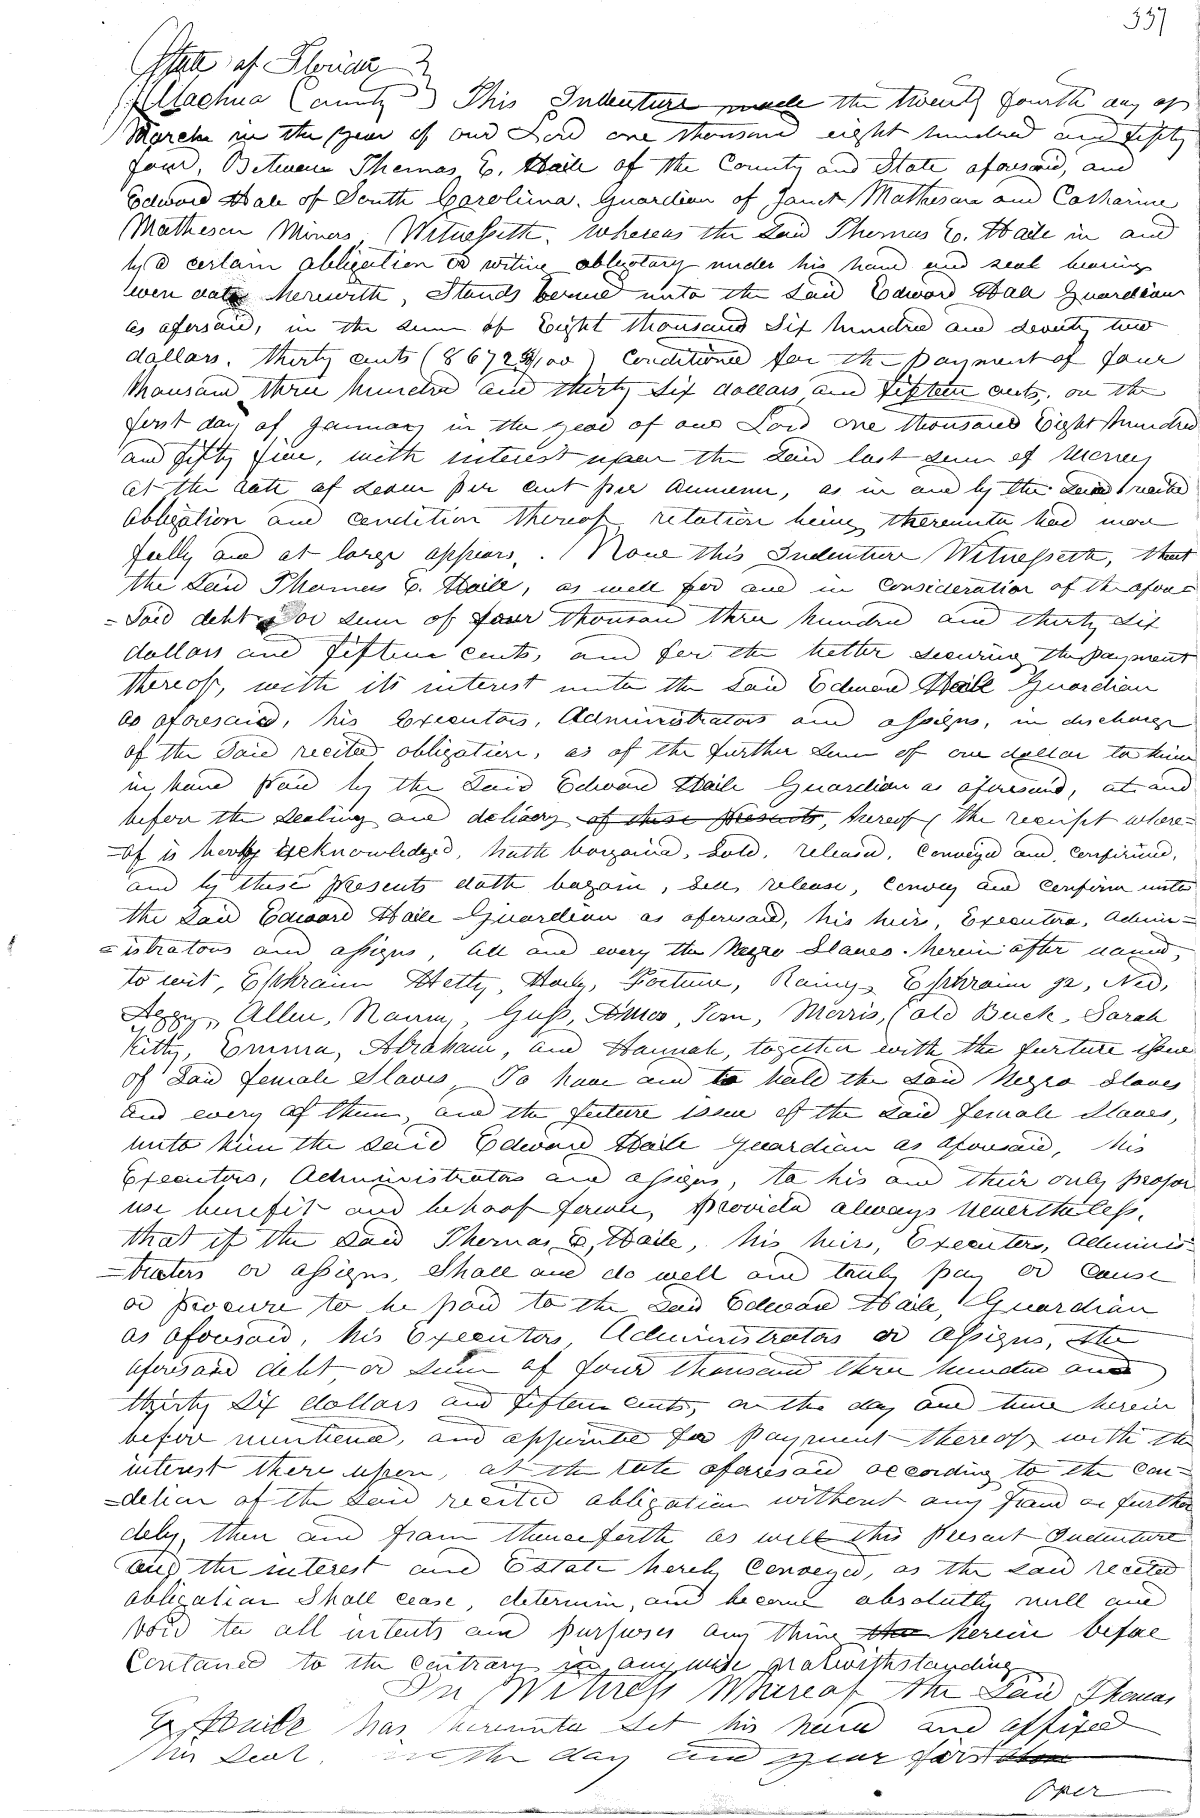 337
State of Florida }
Alachua County } This Indenture made the twenty fourth day of
March in the year of our Lord one thousand eight hundred and fifty
four, Between Thomas E. Haile of the County and State aforesaid, and
Edward Haile of South Carolina. Guardian of Janet Matheson and Catharine
Matheson Minors, Witnesseth. whereas the Said Thomas E. Haile in and
by a certain obligation or writing obligatory under his hand and seal bearing
even date herewith, Stands bound unto the Said Edward Haile Guardian
as aforsaid, in the sum of Eight thousand Six hundred and seventy two
dollars. thirty cents (8672 30/100) Conditioned for the payment of four
thousand three hundred and thirty Six dollars and fifteen cents, on the
first day of January in the year of our Lord one thousand Eight hundred
and fifty five, with interest upon the Said last sum of Money
at the rate of seven per cent per Annum, as in and by the Said recited
obligation and condition thereof, relation being thereunto had more
fully and at large appears. Now this Indenture Witnesseth, that
the Said Thomas E. Haile, as well for and in Consideration of the afore=
=Said debt or sum of four thousand three hundred and thirty six
dollars and fifteen cents, and for the better securing the payment
thereof, with its interest unto the Said Edward Haile Guardian
as aforesaid, his Executors, Administrators and assigns, in discharge
of the Said recited obligation, as of the further sum of one dollar to him
in hand paid by the Said Edward Haile Guardian as aforesaid, at and
before the sealing and delivery of these presents, thereof, the receipt where=
=of is hereby acknowledged, hath bargained, Sold, released, Conveyed and, confirmed,
and by these presents doth bargain, sell, release, Convey and confirm unto
the Said Edward Haile Guardian as aforesaid, his heirs, Executors, Admin=
=istrators and assigns, all and every the Negro Slaves herein after named,
to wit, Ephraim Hetty, Fortune, Rainy, Ephraim jr, Ned,
Aggy, Allen, Nanny, Guss, Amos, Tom, Morris, (old Buck, Sarah
Kitty, Emma, Abraham, and Hannah, together with the furture issue
of Said female Slaves, To have and to hold the Said Negro Slaves
and every of them, and the future issue of the Said female Slaves,
unto him the said Edward Haile Guardian as aforesaid, his
Executors, Administrators and assigns, to his and their only proper
use benefit and behoof forever, Provided always Nevertheless,
that if the Said Thomas E, Haile, his heirs, Executors, Adminis=
=trators or assigns, Shall and do well and truly pay or cause
or procure to be paid to the Said Edward Haile, Guardian
as aforesaid, his Executors, Administrators or Assigns, the
aforesaid debt, or sum of four thousand three hundred and
thirty Six dollars and fifteen cents, on the day and time herein
before mentioned, and appointed for payment thereof, with the
interest there upon, at the rate aforesaid according to the Con=
=dition of the Said recited obligation without any fraud or further
delay, then and from thenceforth as well this Present Indenture
and the interest and Estate hereby Conveyed, as the said recited
obligation Shall cease, determin, and become absolutely null and
void to all intents and purposes any thing the herein before
Contained to the contrary in any wise notwithstanding
In Witness Whereof the Said Thomas
E, Haile has hereunto Set his hand and affixed
his Seal. in the day and year first
Over